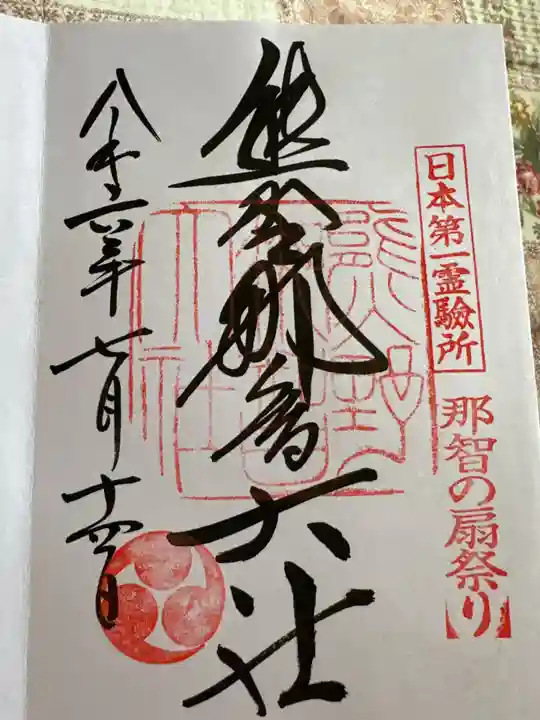 日本第一霊驗所
那智の扇祭り】
熊野那智大社
熊野
那智
大社
令和六年七月十四日